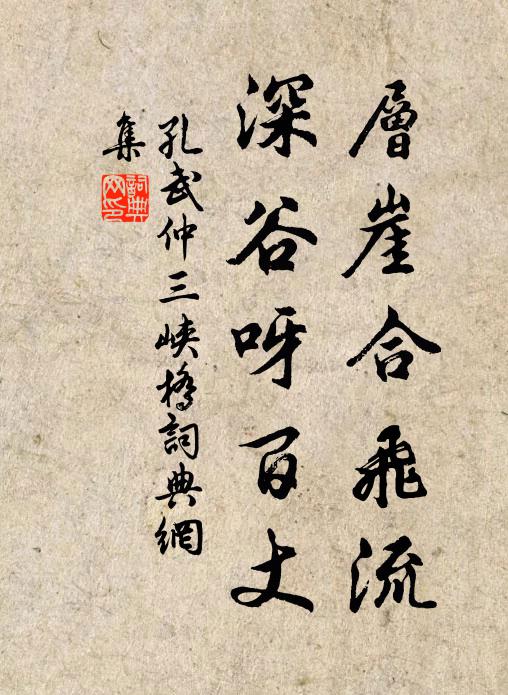 層崖合飛流
深谷呀百丈
孔武仲三峽橋詞典網
集
詞典
网印